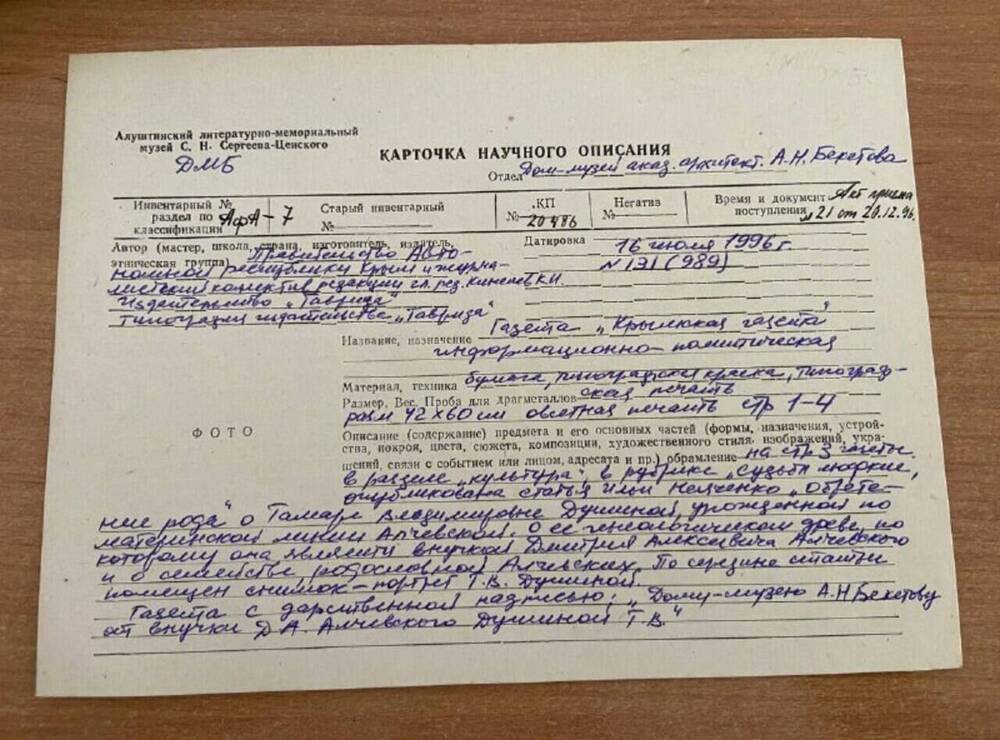 Алуштинский литературно-мемориальный
музей С. Н. Сергеева-Ценского
ДМБ
КАРТОЧКА НАУЧНОГО ОПИСАНИЯ
Отдел Дом-музей акад. архитект. А.Н. Бекетова
Инвентарный №
раздел по
классификации АфА-7
Старый инвентарный
№
КП
№ 20486
Негатив
№
Время и документ Акт приема
поступления №21 от 20.12.96.
Автор (мастер, школа, страна, изготовитель, издатель,
этническая группа) Правительство Авто-
номной республики Крым и журна-
листский коллектив редакции гл. ред.
Издательство „Таврида"
типография издательства „Таврида"
Датировка 16 июля 1996 г.
№ 131 (989)
Название, назначение Газета „Крымская газета"
информационно-политическая
Материал, техника бумага, типографская краска, типограф-
ская печать
Размер, Вес. Проба для драгметаллов
разм 42х60 см офсетная печать стр 1-4
ФОТО
Описание (содержание) предмета и его основных частей (формы, назначения, устрой-
ства, покроя, цвета, сюжета, композиции, художественного стиля, изображений, укра-
шений, связи с событием или лицом, адресата и пр.) обрамление на стр 3 газеты.
в разделе „культура", в рубрике „судьбы людские,
опубликована статья Ильи „Обрете-
ние рода" о Тамаре Владимировне Душиной, урожденной по
материнской линии Алчевской. О ее генеологическом древе, по
которому она является внучкой Дмитрия Алексеевича Алчевского
и о семействе, родословной Алчевских. По середине статьи
помещен снимок-портрет Т.В. Душиной.
Газета с дарственной надписью: „Дому-музею А.Н Бекетову
от внучки Д.А. Алчевского Душиной Т.В."